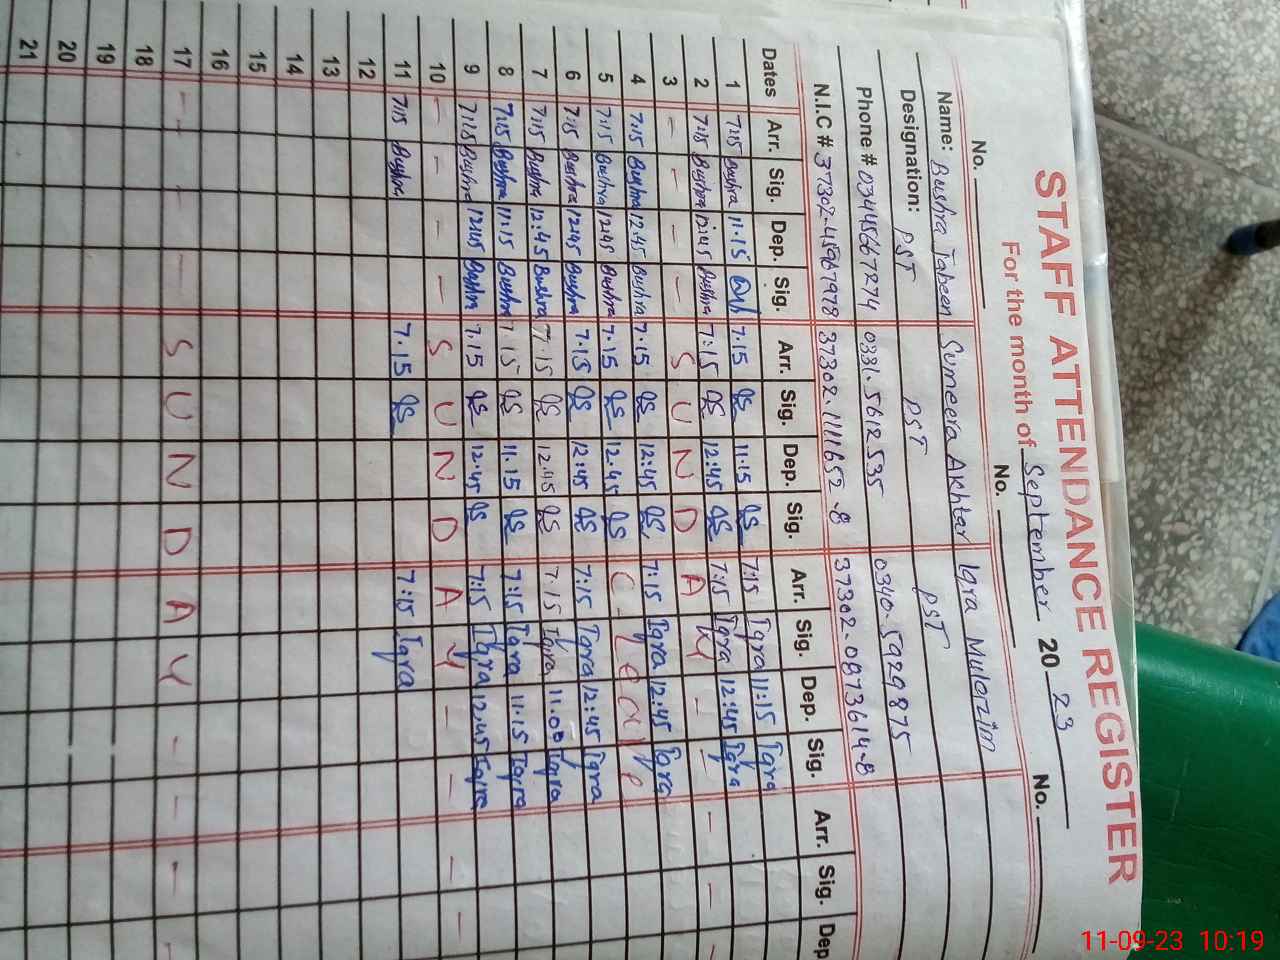 STAFF ATTENDANCE REGISTER
For the month of September 2023
No. No. No.
Name: Bushra Jabeen Sumeera Akhtar Iqra Mulazim
Designation: PST PST PST
Phone # 03445667274 0331.5612535 0340.5929875
N.I.C # 37302-4596797-8 37302.1111652-8 37302-0873614-8
Dates Arr. Sig. Dep. Sig. Arr. Sig. Dep. Sig. Arr. Sig. Dep. Sig. Arr. Sig. Dep
1 7:15 Bushra 11.15 7.15 11.15 7:15 Iqra 11:15 Iqra
2 7:15 Bushra 12:45 Bushra 7:15 12:45 7:15 Iqra 12:45 Iqra
3 - - - - S U N D A Y - - - - -
4 7:15 Bushra 12:45 Bushra 7.15 12:45 7:15 Iqra 12:45 Iqra
5 7:15 Bushra 12:45 Bushra 7.15 12.45 C-Leave
6 7:15 Bushra 12:45 Bushra 7.15 12:45 7:15 Iqra 12:45 Iqra
7 7:15 Bushra 12:45 Bushra 7.15 12.45 7.15 Iqra 11.00 Iqra
8 7:15 Bushra 11:15 Bushra 7.15 11.15 7:15 Iqra 11:15 Iqra
9 7:15 Bushra 12:45 Bushra 7.15 12.45 7:15 Iqra 12:45 Iqra
10 - - - - S U N D A Y - - - -
11 7:15 Bushra 7.15 7:15 Iqra
12
13
14
15
16
17 - - - - S U N D A Y - - - -
18
19
20
21
11-09-23 10:19